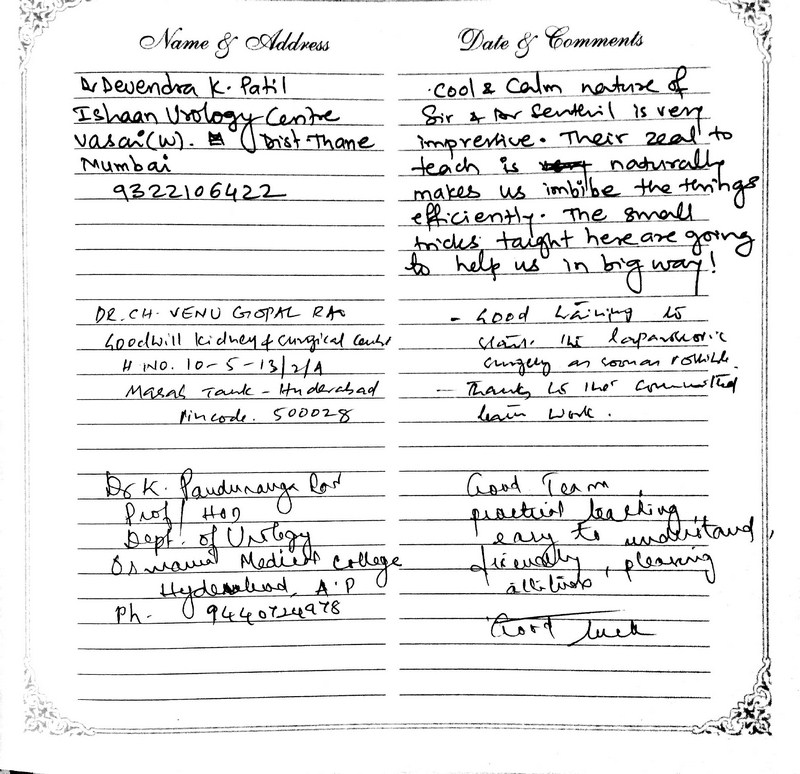 Name & Address
Dr Devendra K. Patil
Ishaan Urology Centre
Vasai (W). Dist-Thane
Mumbai
9322106422
DR. CH. VENU GOPAL RAO
Goodwill Kidney & Surgical Centre
H NO. 10-5-13/2/A
Masab Tank - Hyderabad
Pincode. 500028
Dr K. Panduranga Rao
Prof / HOD
Dept. of Urology
Osmania Medical College
Hyderabad, A.P
Ph. 9440724978
Date & Comments
Cool & Calm nature of
Sir & Dr Senthil is very
impressive. Their zeal to
teach is naturally
makes us imbibe the things
efficiently. The small
tricks taught here are going
to help us in big way!
- Good training to
start the laparoscopic
surgery as soon as possible.
- Thanks to their committed
team work.
Good Team,
practical teaching
easy to understand,
friendly, pleasing
attitudes
Good luck